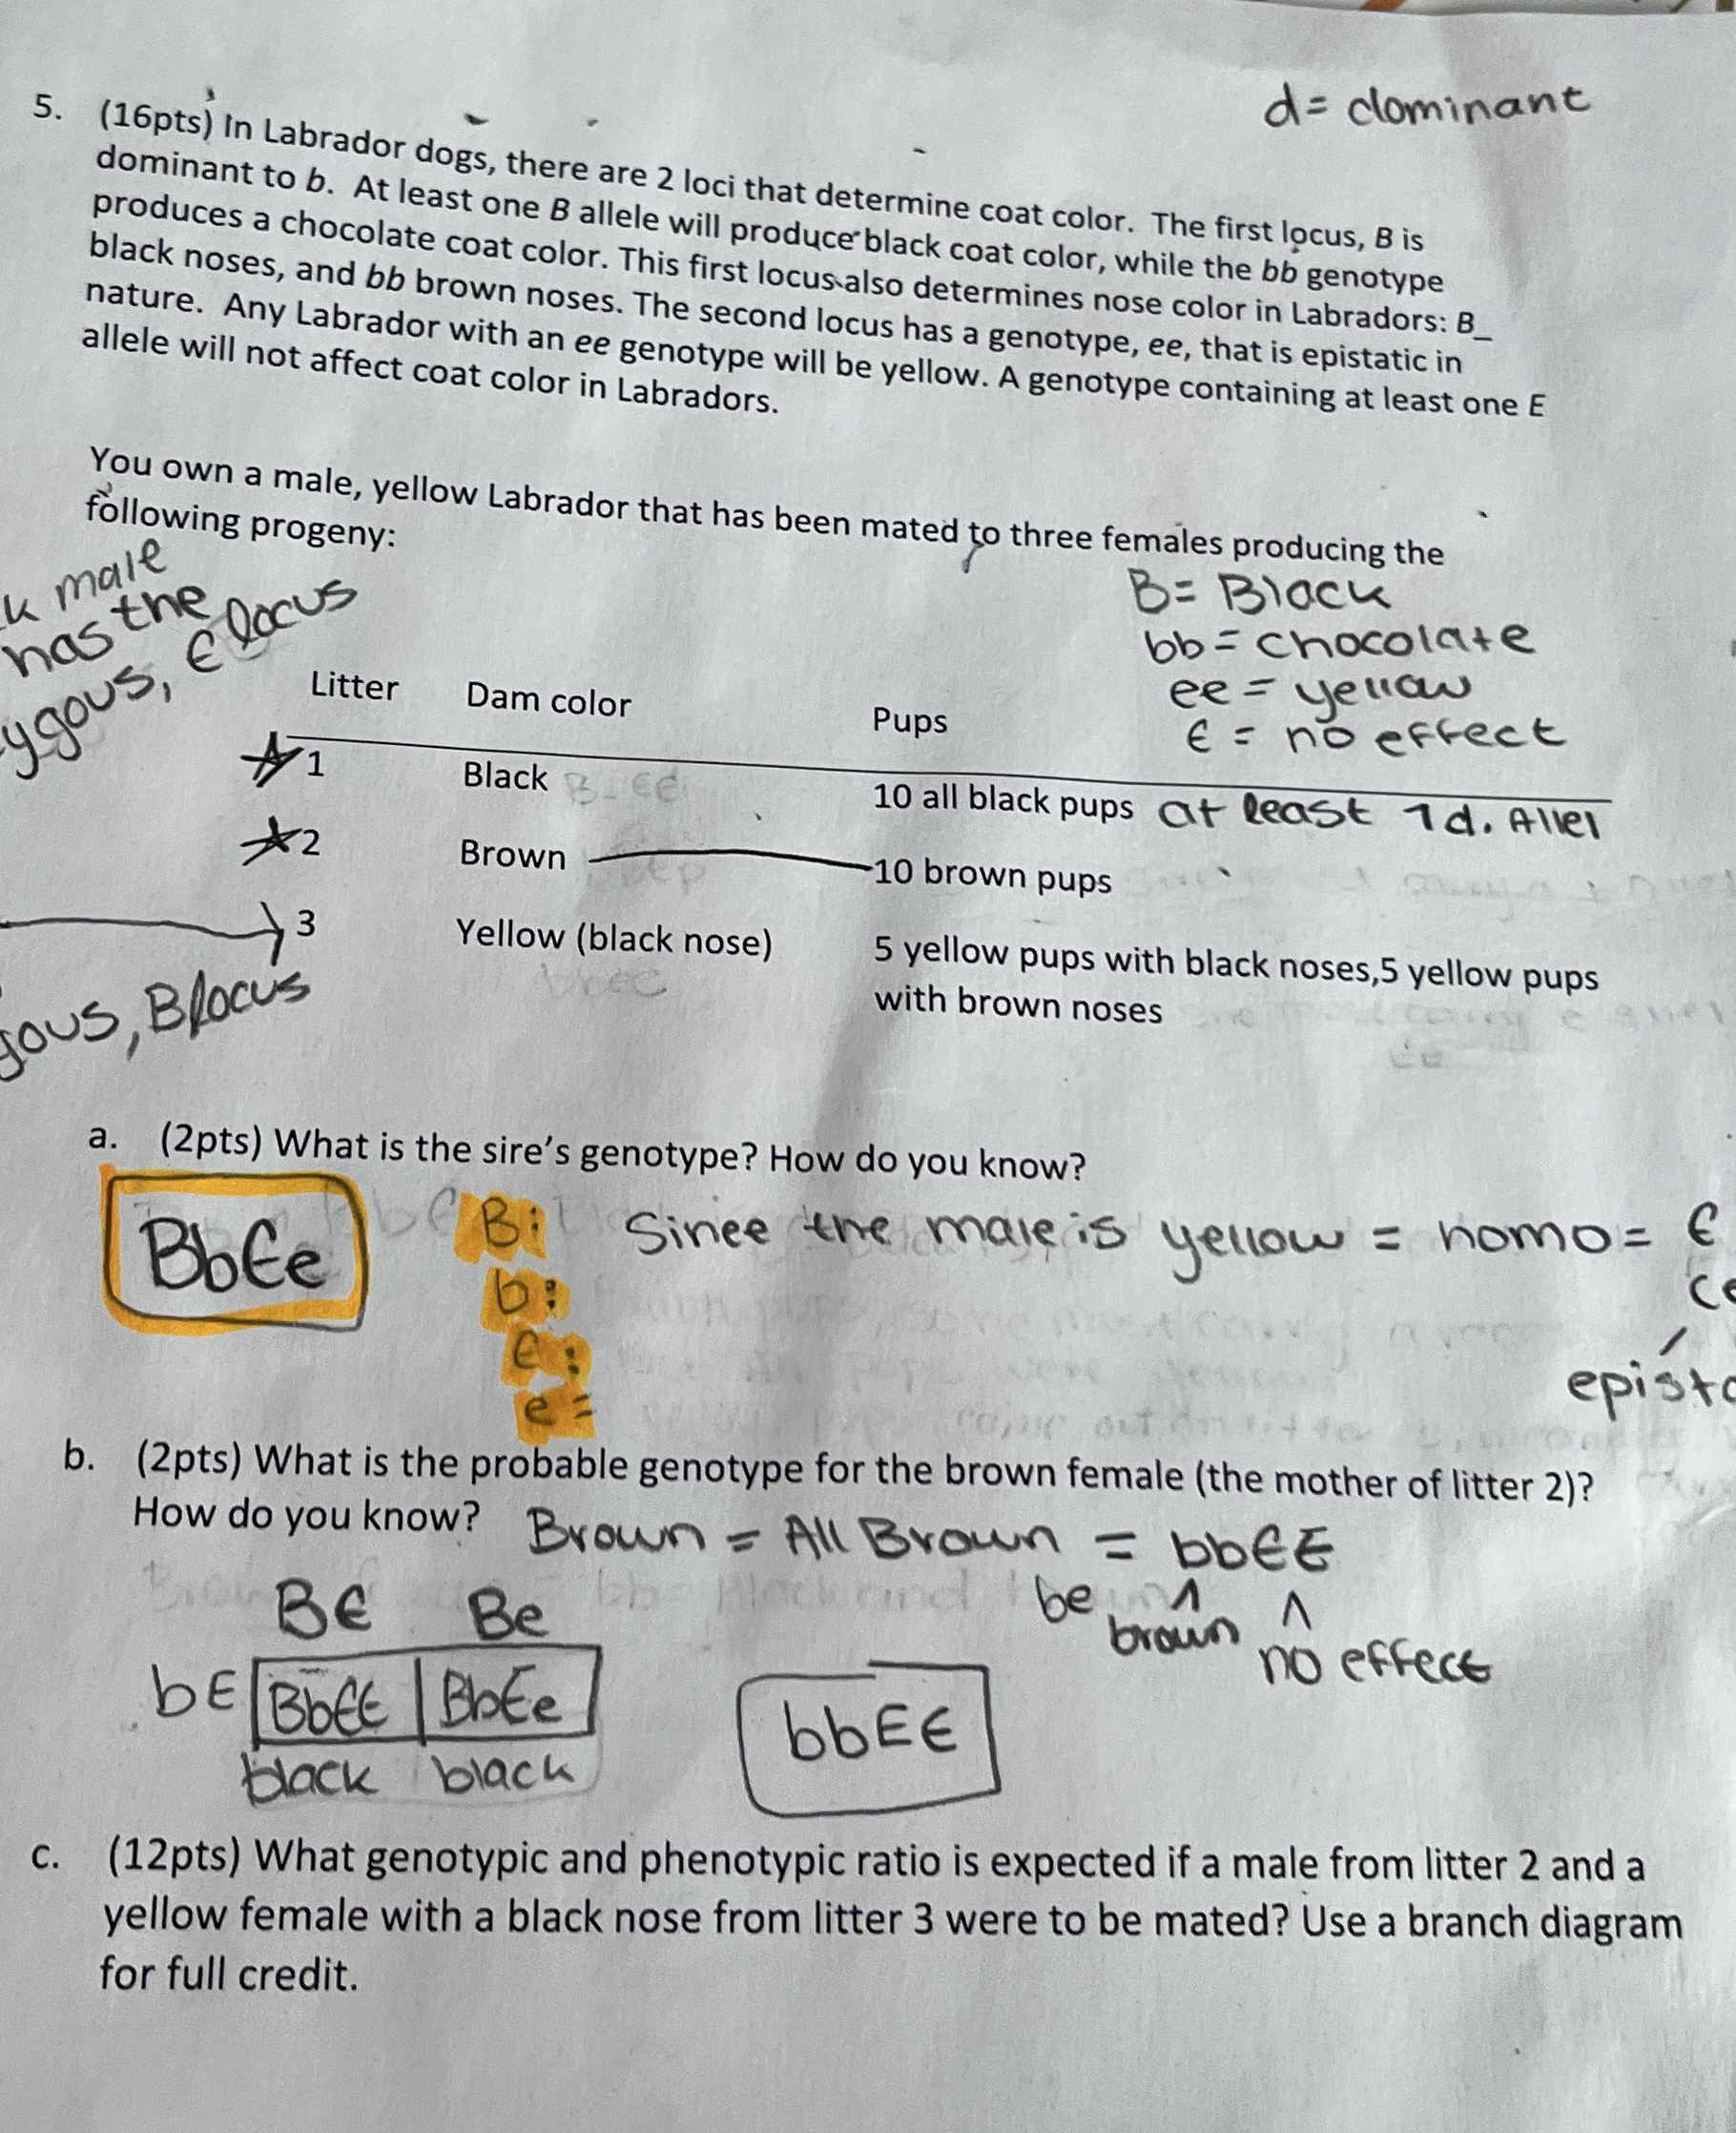 d= dominant
5. (16pts) In Labrador dogs, there are 2 loci that determine coat color. The first locus, B is
dominant to b. At least one B allele will produce black coat color, while the bb genotype
produces a chocolate coat color. This first locus also determines nose color in Labradors: B_
black noses, and bb brown noses. The second locus has a genotype, ee, that is epistatic in
nature. Any Labrador with an ee genotype will be yellow. A genotype containing at least one E
allele will not affect coat color in Labradors.
You own a male, yellow Labrador that has been mated to three females producing the
following progeny:
male
has the
ygous, E locus
B= Black
bb= chocolate
ee = yellow
E = no effect
Litter Dam color Pups
1 Black 10 all black pups at least 1 d. Allel
2 Brown 10 brown pups
3 Yellow (black nose) 5 yellow pups with black noses,5 yellow pups
with brown noses
gous, B locus
a. (2pts) What is the sire's genotype? How do you know?
BbEe B: Since the male is yellow = homo = E
b:
E:
e=
epista
b. (2pts) What is the probable genotype for the brown female (the mother of litter 2)?
How do you know? Brown = All Brown = bbEE
be brown no effect
BE Be
bE BbEE BbEe
black black
bbEE
c. (12pts) What genotypic and phenotypic ratio is expected if a male from litter 2 and a
yellow female with a black nose from litter 3 were to be mated? Use a branch diagram
for full credit.